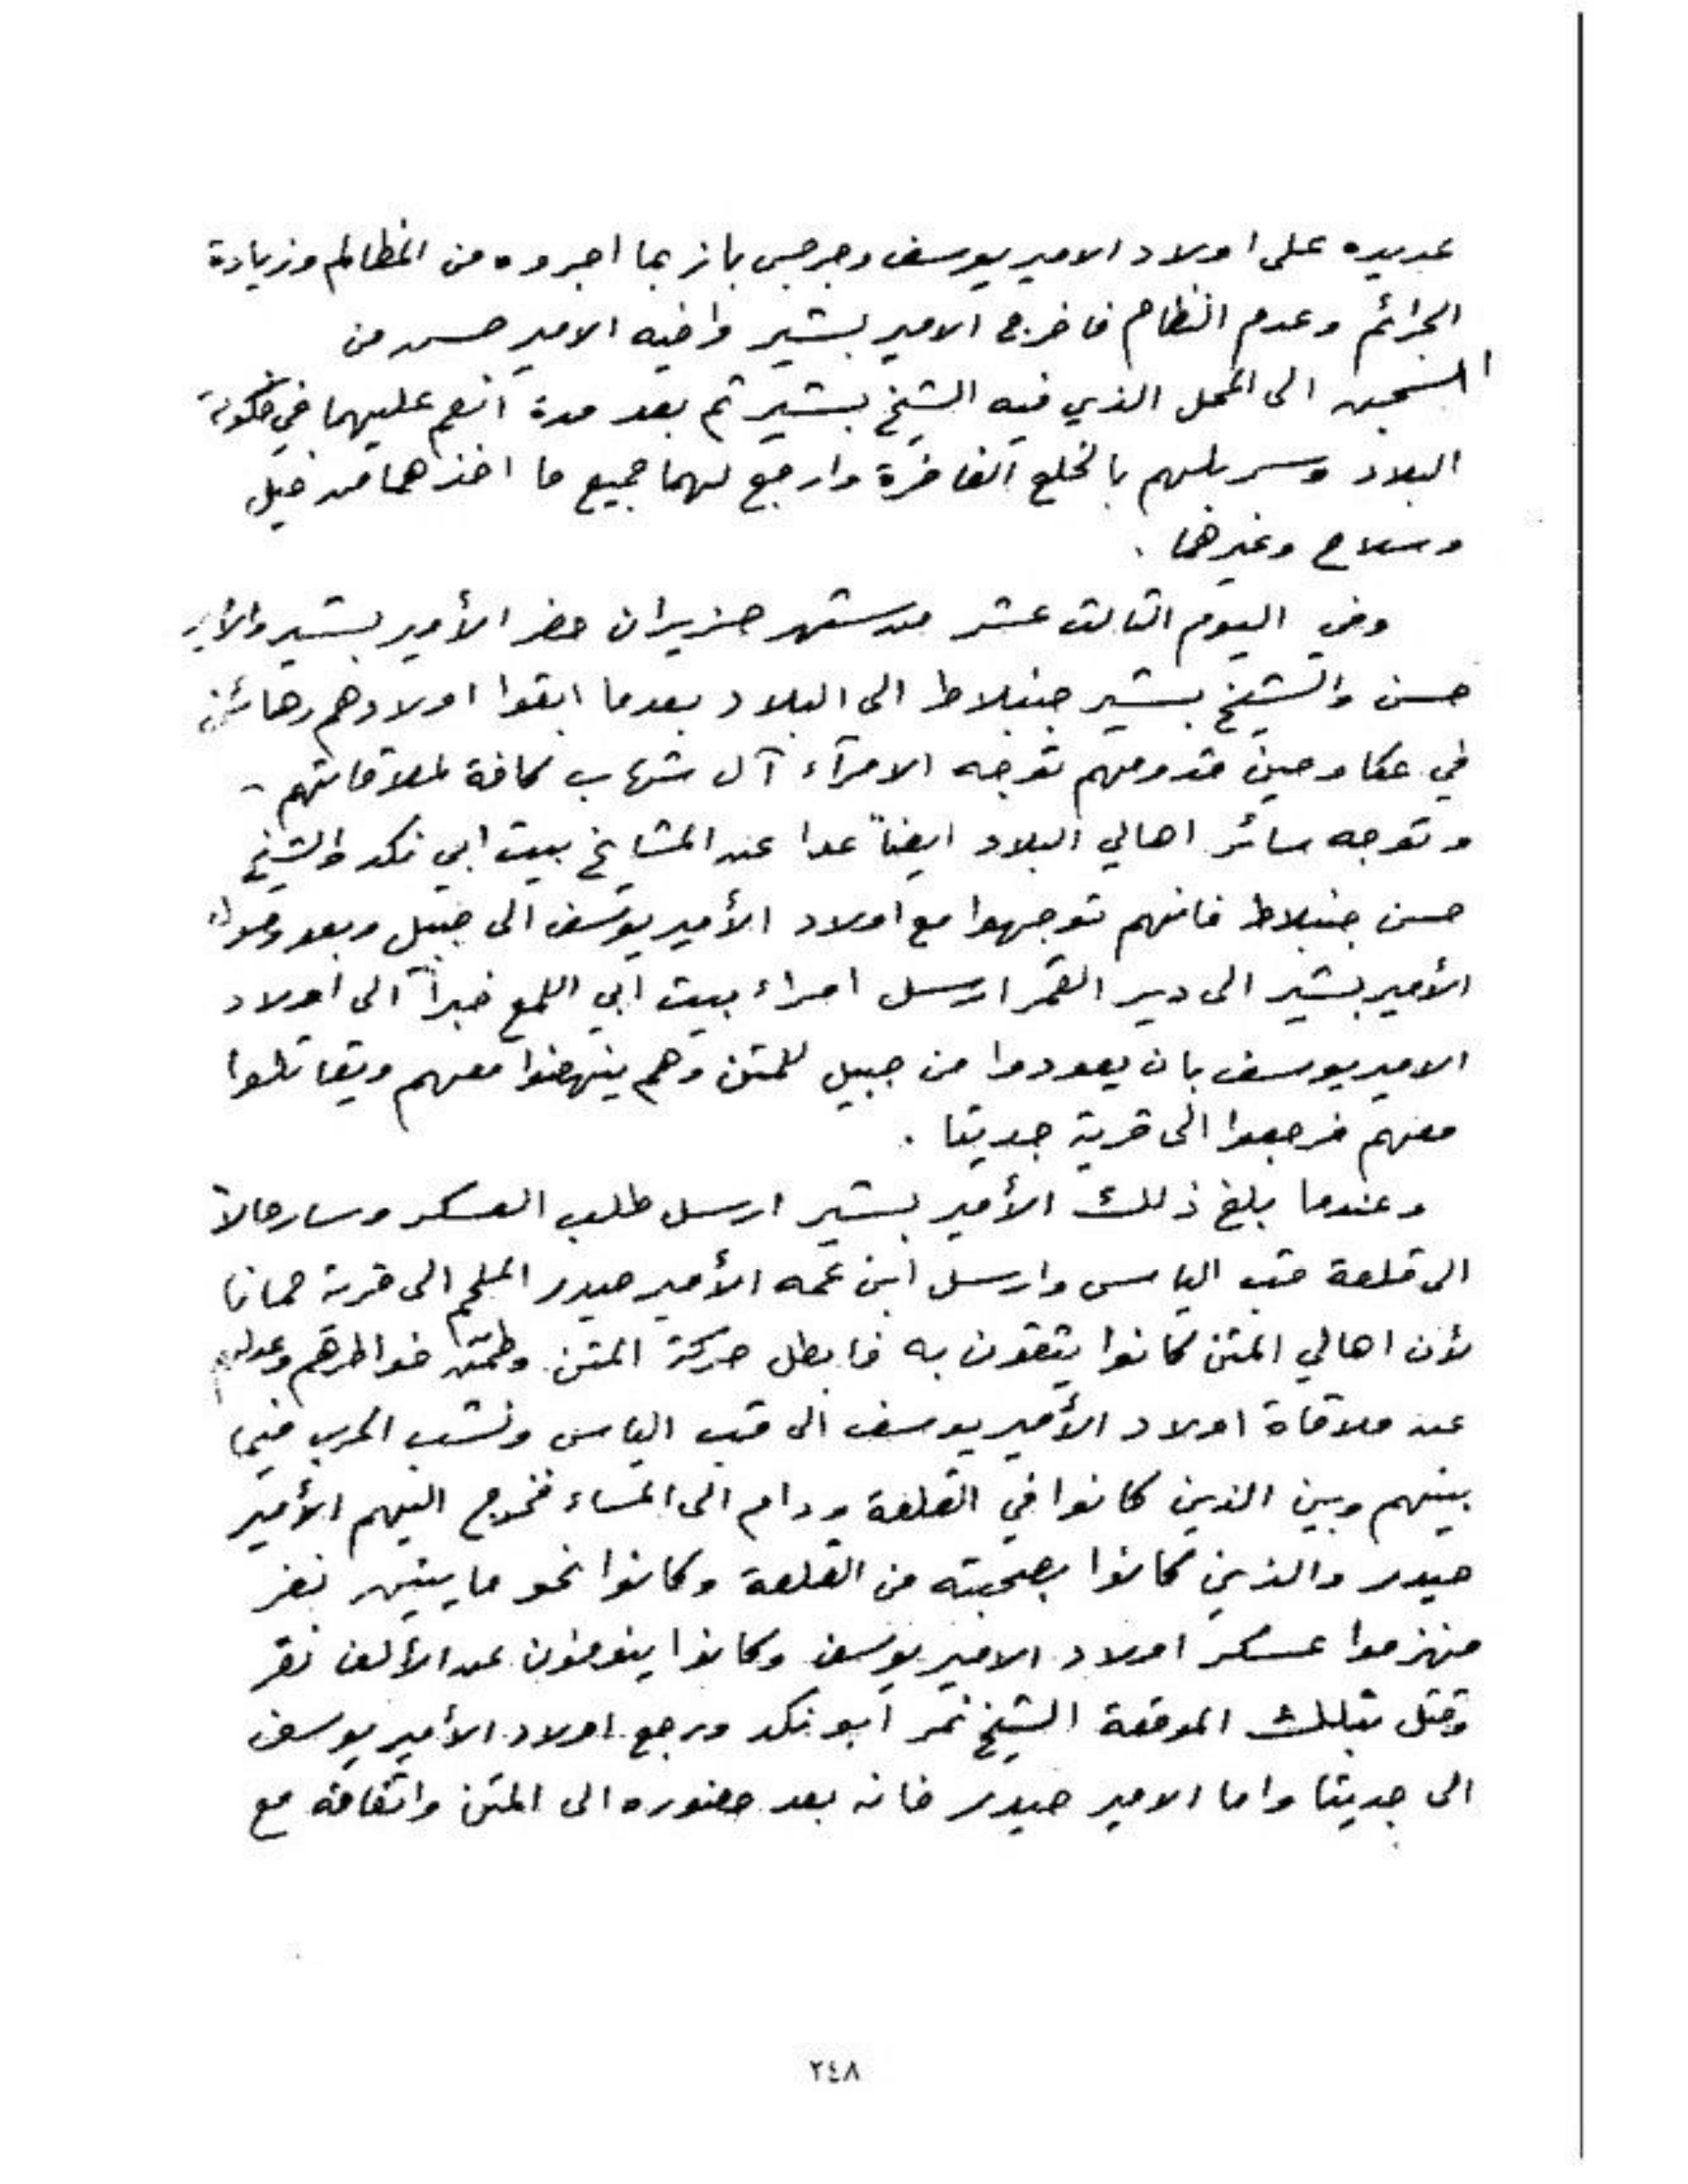 عديده على اولاد الامير يوسف وجرجس باز بما اجروه من المظالم وزيادة
الجرائم وعدم النظام فاخرج الامير بشير واخيه الامير حسن من
السجن الى المحل الذي فيه الشيخ بشير ثم بعد مدة انعم عليهما في حكومة
البلاد وسربلهم بالخلع الفاخرة وارجع لهما جميع ما اخذهما من خيل
وسلاح وغيرهما .
وفي اليوم الثالث عشر من شهر حزيران حضر الأمير بشير والأمير
حسن والشيخ بشير جنبلاط الى البلاد بعدما ابقوا اولادهم رهائن
في عكا وحين قدومهم توجه الامرآء آل شهاب كافة لملاقاتهم -
وتوجه سائر اهالي البلاد ايضاً عدا عن المشايخ بيت ابي نكد والشيخ
حسن جنبلاط فانهم توجهوا مع اولاد الأمير يوسف الى جبيل وبعد وصول
الأمير بشير الى دير القمر ارسل امراء بيت ابي اللمع خبراً الى اولاد
الامير يوسف بان يعودوا من جبيل للمتن وهم ينهضوا معهم ويقاتلوا
معهم فرجعوا الى قرية جديتا .
وعندما بلغ ذلك الأمير بشير ارسل طلب العسكر وسار حالاً
الى قلعة قب الياس وارسل ابن عمه الأمير حيدر الملحم الى قرية حمانا
لأن اهالي المتن كانوا يثقون به فابطل حركة المتن وطمن خواطرهم وعدلهم
عن ملاقاة اولاد الأمير يوسف الى قب الياس ونشب الحرب فيما
بينهم وبين الذين كانوا في القلعة ودام الى المساء فخرج اليهم الأمير
حيدر والذين كانوا بصحبته من القلعة وكانوا نحو مايتين نفر
فنهزموا عسكر اولاد الامير يوسف وكانوا ينوفون عن الألف نفر
وقتل بتلك الموقعة الشيخ نمر ابو نكد ورجع اولاد الأمير يوسف
الى جديتا واما الامير حيدر فانه بعد حضوره الى المتن واتفاقه مع
٢٤٨